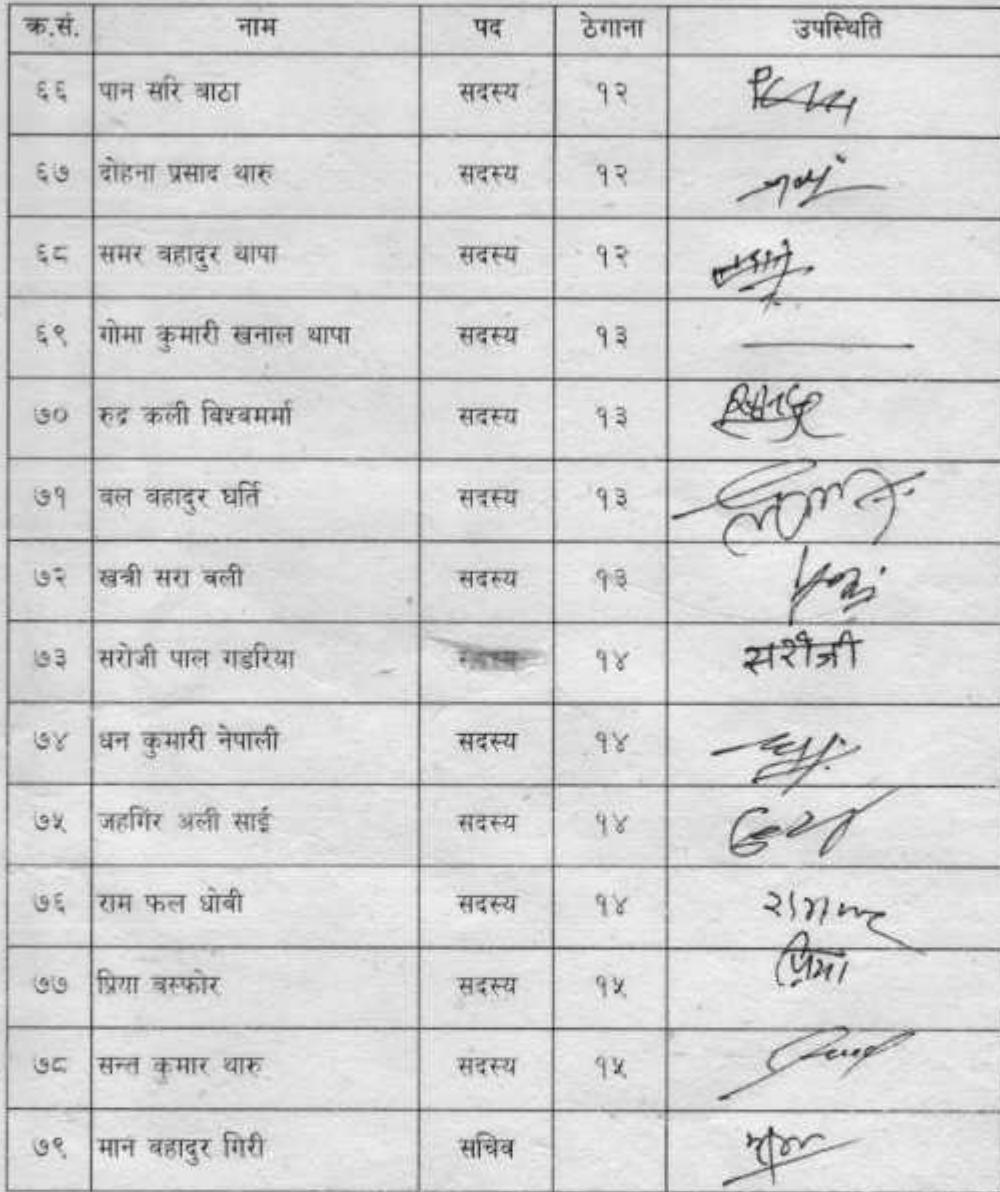 क्र.सं. नाम पद ठेगाना उपस्थिति
६६ पान सरि बाठा सदस्य १२
६७ दोहना प्रसाद थारु सदस्य १२
६८ समर बहादुर थापा सदस्य १२
६९ गोमा कुमारी खनाल थापा सदस्य १३
७० रुद्र कली विश्वमर्मा सदस्य १३
७१ बल बहादुर घर्ति सदस्य १३
७२ खत्री सरा वली सदस्य १३
७३ सरोजी पाल गडरिया सदस्य १४ सरोजी
७४ धन कुमारी नेपाली सदस्य १४
७५ जहगिर अली साई सदस्य १४
७६ राम फल धोबी सदस्य १४
७७ प्रिया बस्फोर सदस्य १५ प्रिया
७८ सन्त कुमार थारु सदस्य १५
७९ मान बहादुर गिरी सचिव